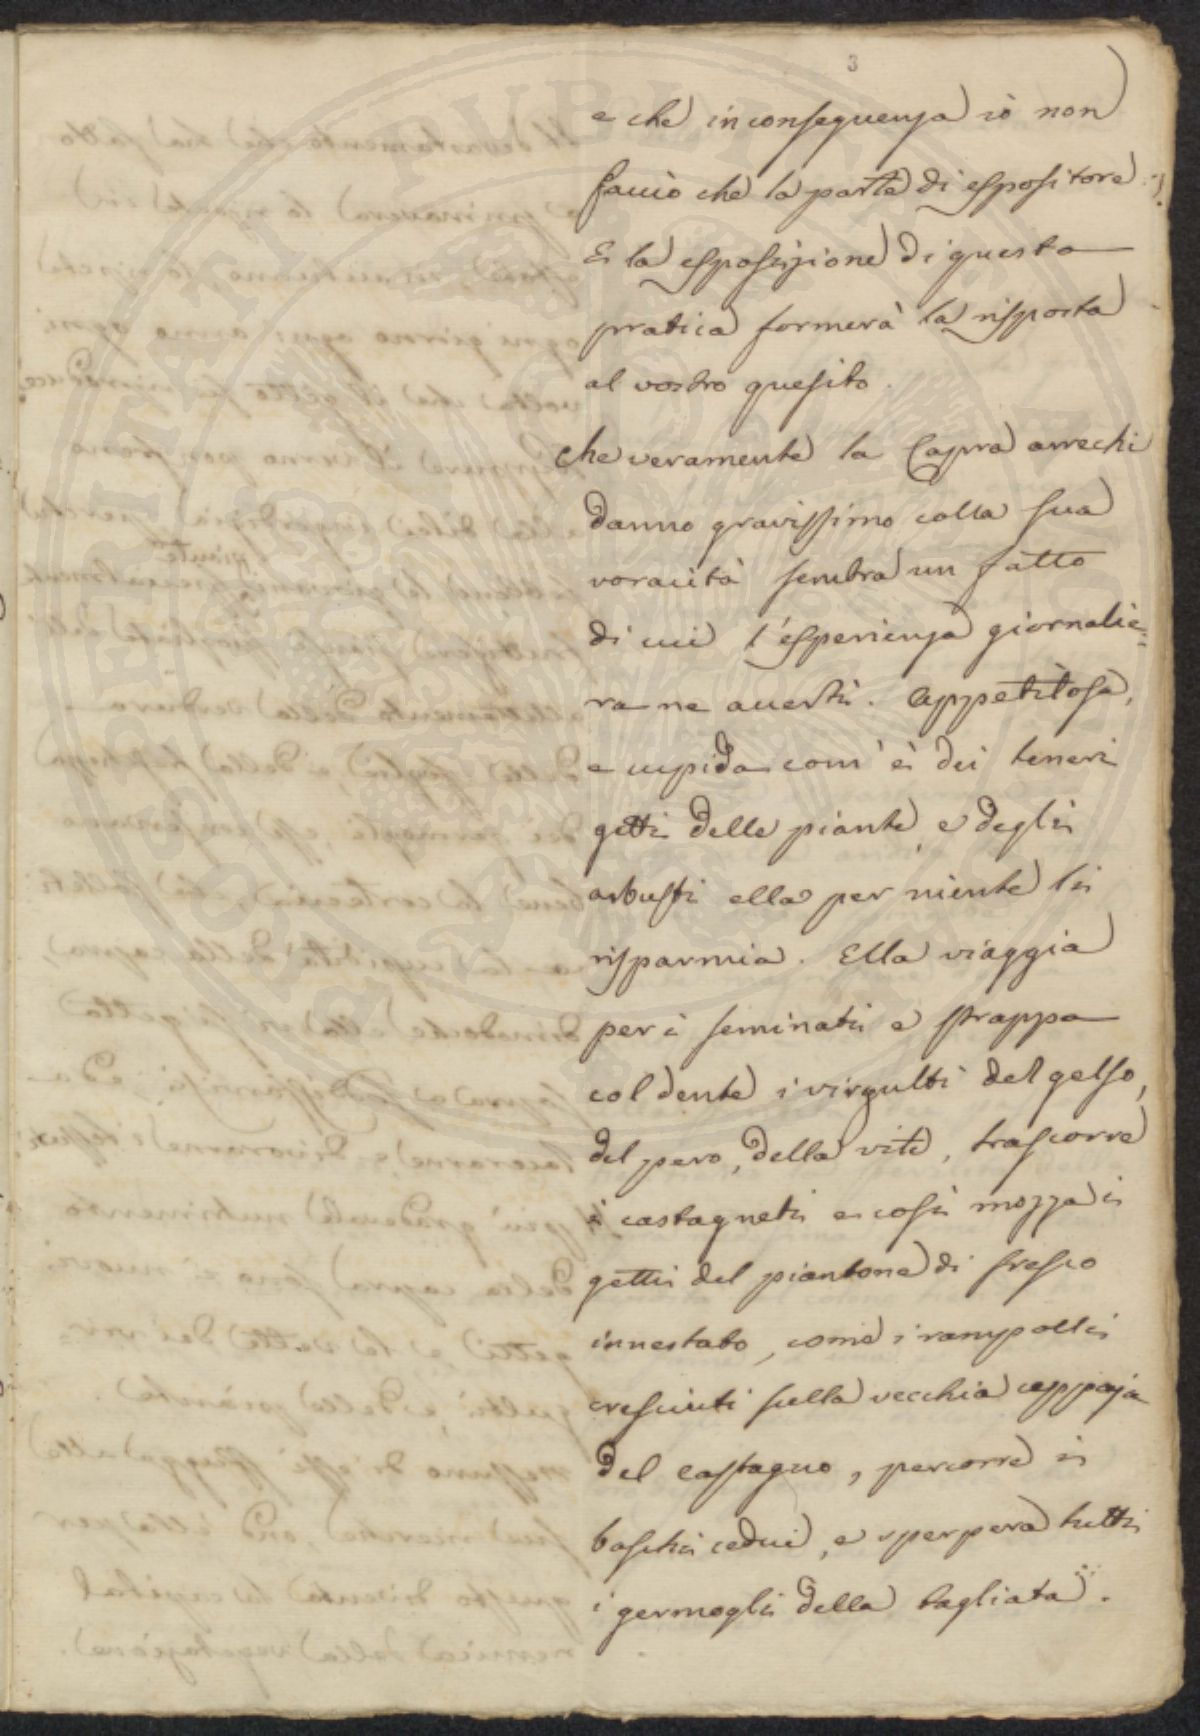 3
e che in conseguenza io non
faccio che la parte di espositore.
E la esposizione di questa
pratica formerà la risposta
al vostro quesito.
Che veramente la Capra arrechi
danno gravissimo colla sua
voracità sembra un fatto
di cui l'esperienza giornalie=
ra ne accerti. Appetitosa,
e cupida com'è dei teneri
getti delle piante, e degli
arbusti ella per niente li
risparmia. Ella viaggia
per i seminati e strappa
col dente i virgulti del gelso,
del pero, della vite, trascorre
i castagneti e così mozza i
getti del piantone di fresco
innestato, come i rampolli
cresciuti sulla vecchia ceppaja
del castagno, percorre i
boschi cedui, e sperpera tutti
i germogli della tagliata.